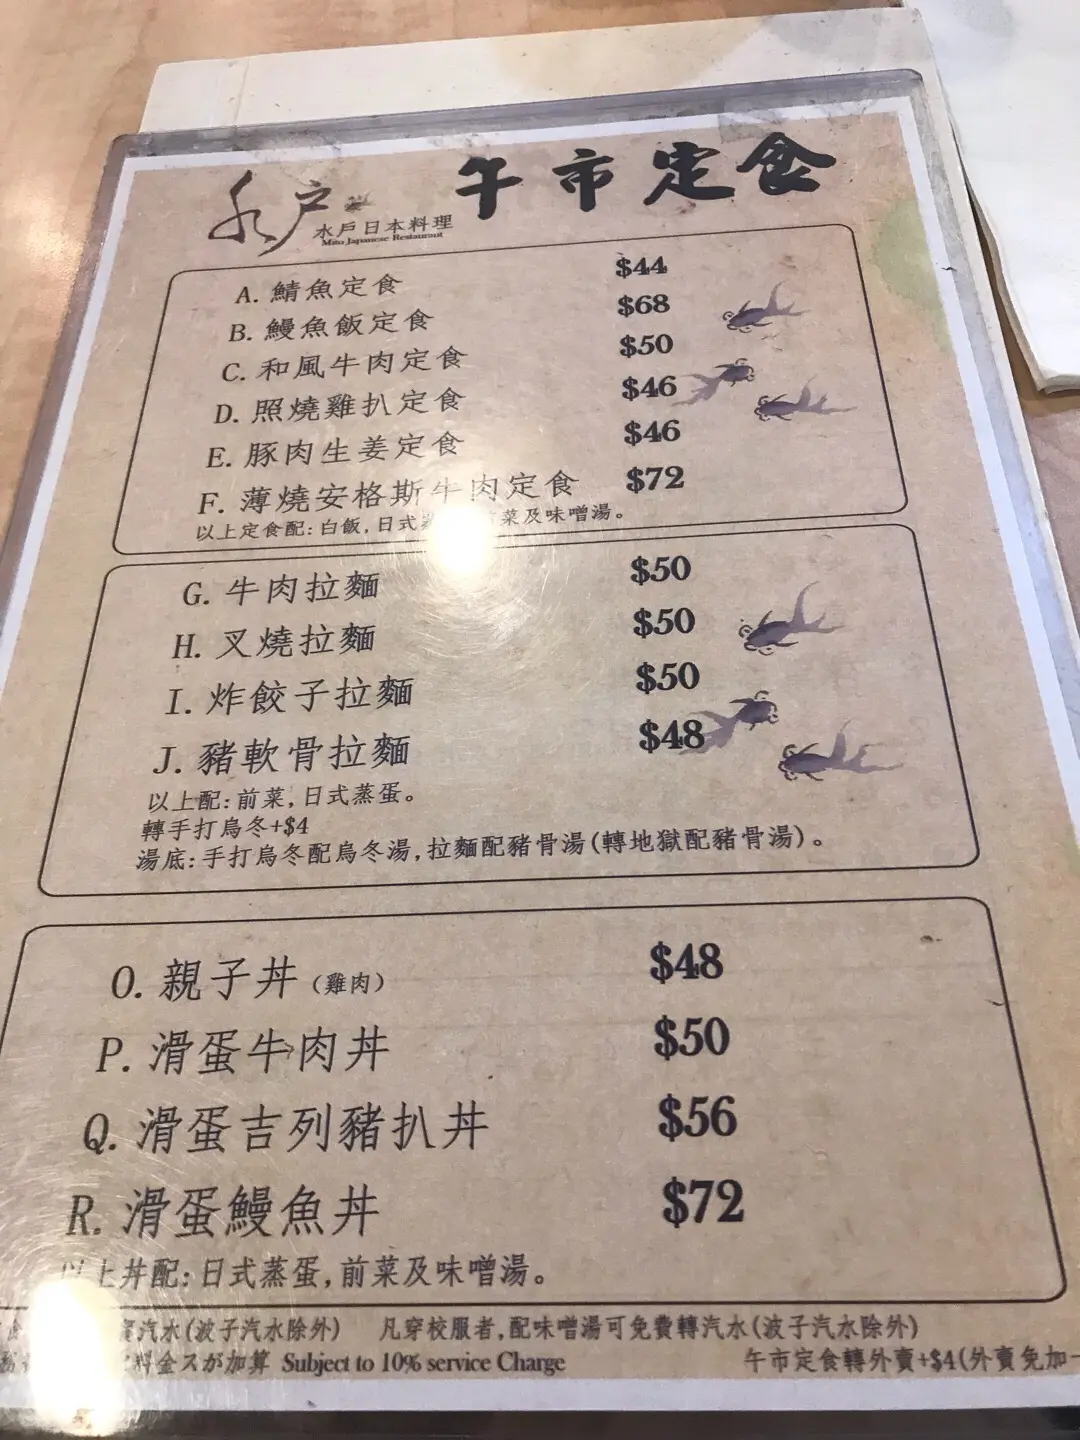 水戶 午市定食
水戶日本料理
Mito Japanese Restaurant
A. 鯖魚定食 $44
B. 鰻魚飯定食 $68
C. 和風牛肉定食 $50
D. 照燒雞扒定食 $46
E. 豚肉生姜定食 $46
F. 薄燒安格斯牛肉定食 $72
以上定食配:白飯,日式 菜及味噌湯。
G. 牛肉拉麵 $50
H. 叉燒拉麵 $50
I. 炸餃子拉麵 $50
J. 豬軟骨拉麵 $48
以上配:前菜,日式蒸蛋。
轉手打烏冬+$4
湯底:手打烏冬配烏冬湯,拉麵配豬骨湯(轉地獄配豬骨湯)。
O. 親子丼(雞肉) $48
P. 滑蛋牛肉丼 $50
Q. 滑蛋吉列豬扒丼 $56
R. 滑蛋鰻魚丼 $72
以上丼配:日式蒸蛋,前菜及味噌湯。
汽水(波子汽水除外) 凡穿校服者,配味噌湯可免費轉汽水(波子汽水除外)
料金スが加算 Subject to 10% service Charge 午市定食轉外賣+$4(外賣免加一